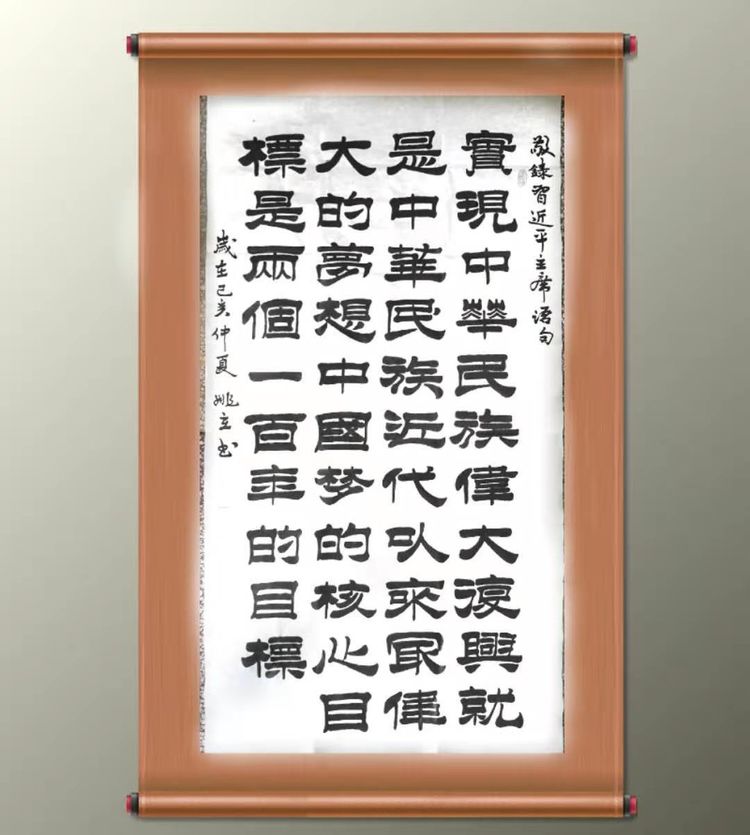 敬錄習近平主席语句
實現中華民族偉大復興就
是中華民族近代以來最偉
大的夢想中國梦的核心目
標是兩個一百年的目標
歲在己亥仲夏 姚立书